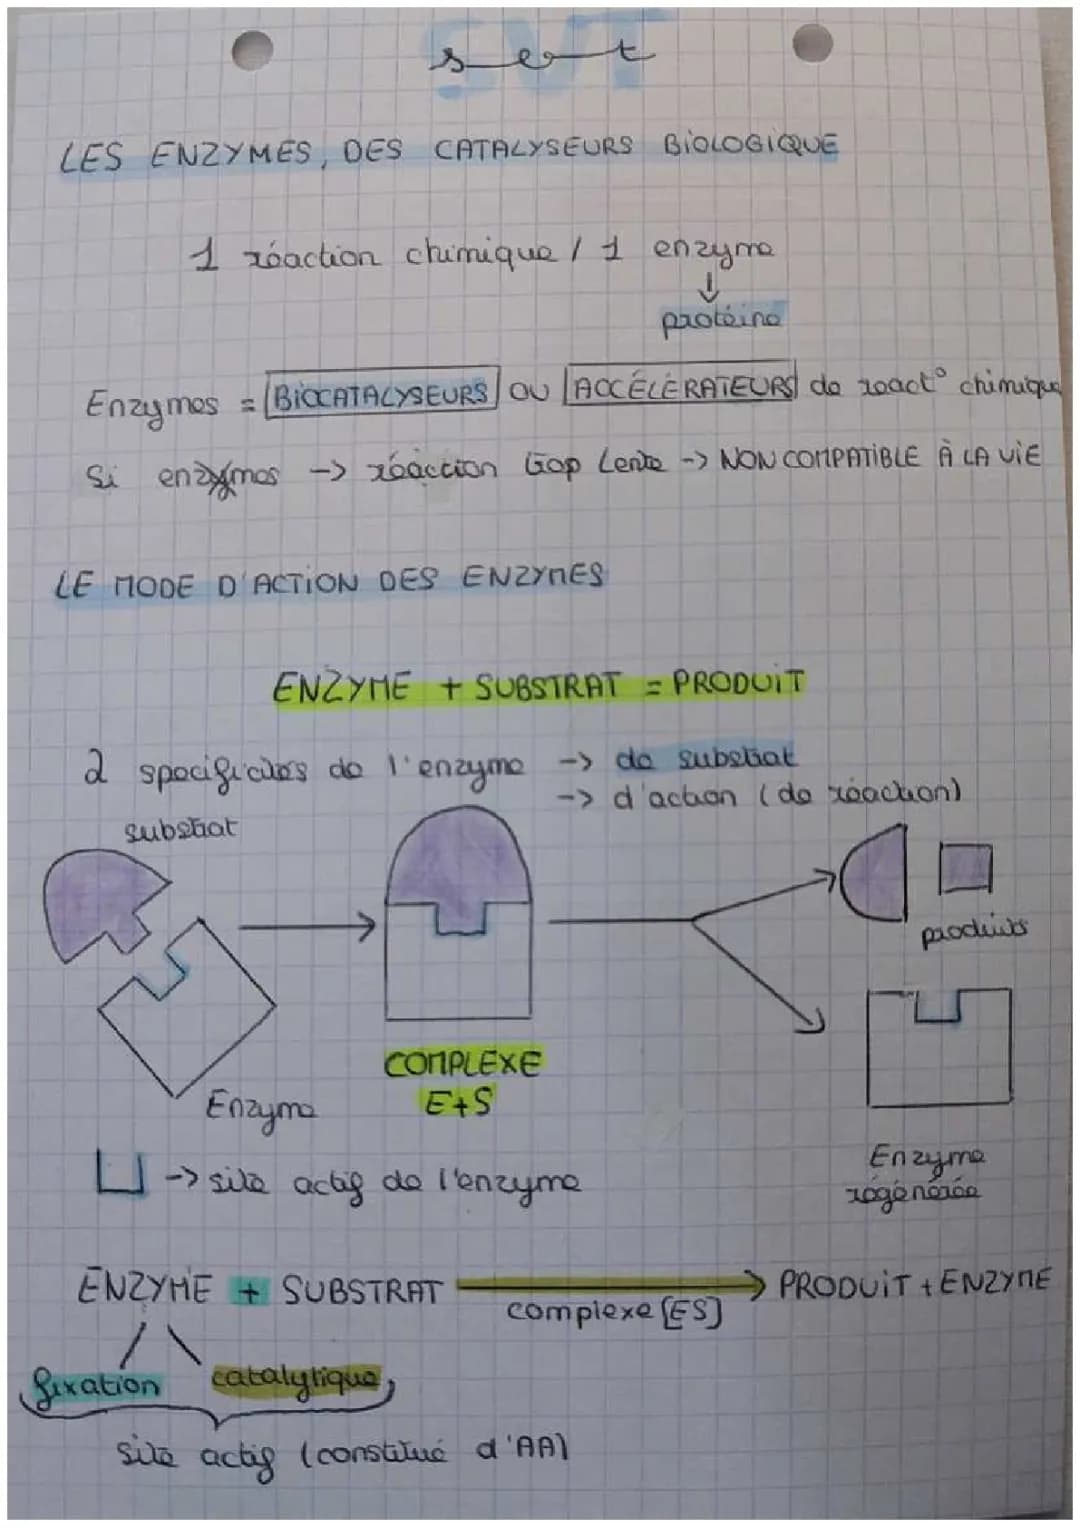 SVT
LES ENZYMES, DES CATALYSEURS BIOLOGIQUE
1 réaction chimique / 1 enzyme
↓
protéine
Enzymes = BIOCATALYSEURS OU ACCÉLÉRATEURS de réact° chimique
Si enzymes -> réaction trop lente -> NON COMPATIBLE À LA VIE
LE MODE D'ACTION DES ENZYMES
ENZYME + SUBSTRAT = PRODUIT
2 spécificités de l'enzyme -> de substrat
-> d'action (de réaction)
substrat
produits
COMPLEXE
E+S
Enzyme
-> site actif de l'enzyme
Enzyme
régénérée
ENZYME + SUBSTRAT → PRODUIT + ENZYME
complexe [ES]
fixation catalytique
site actif (constitué d'AA)